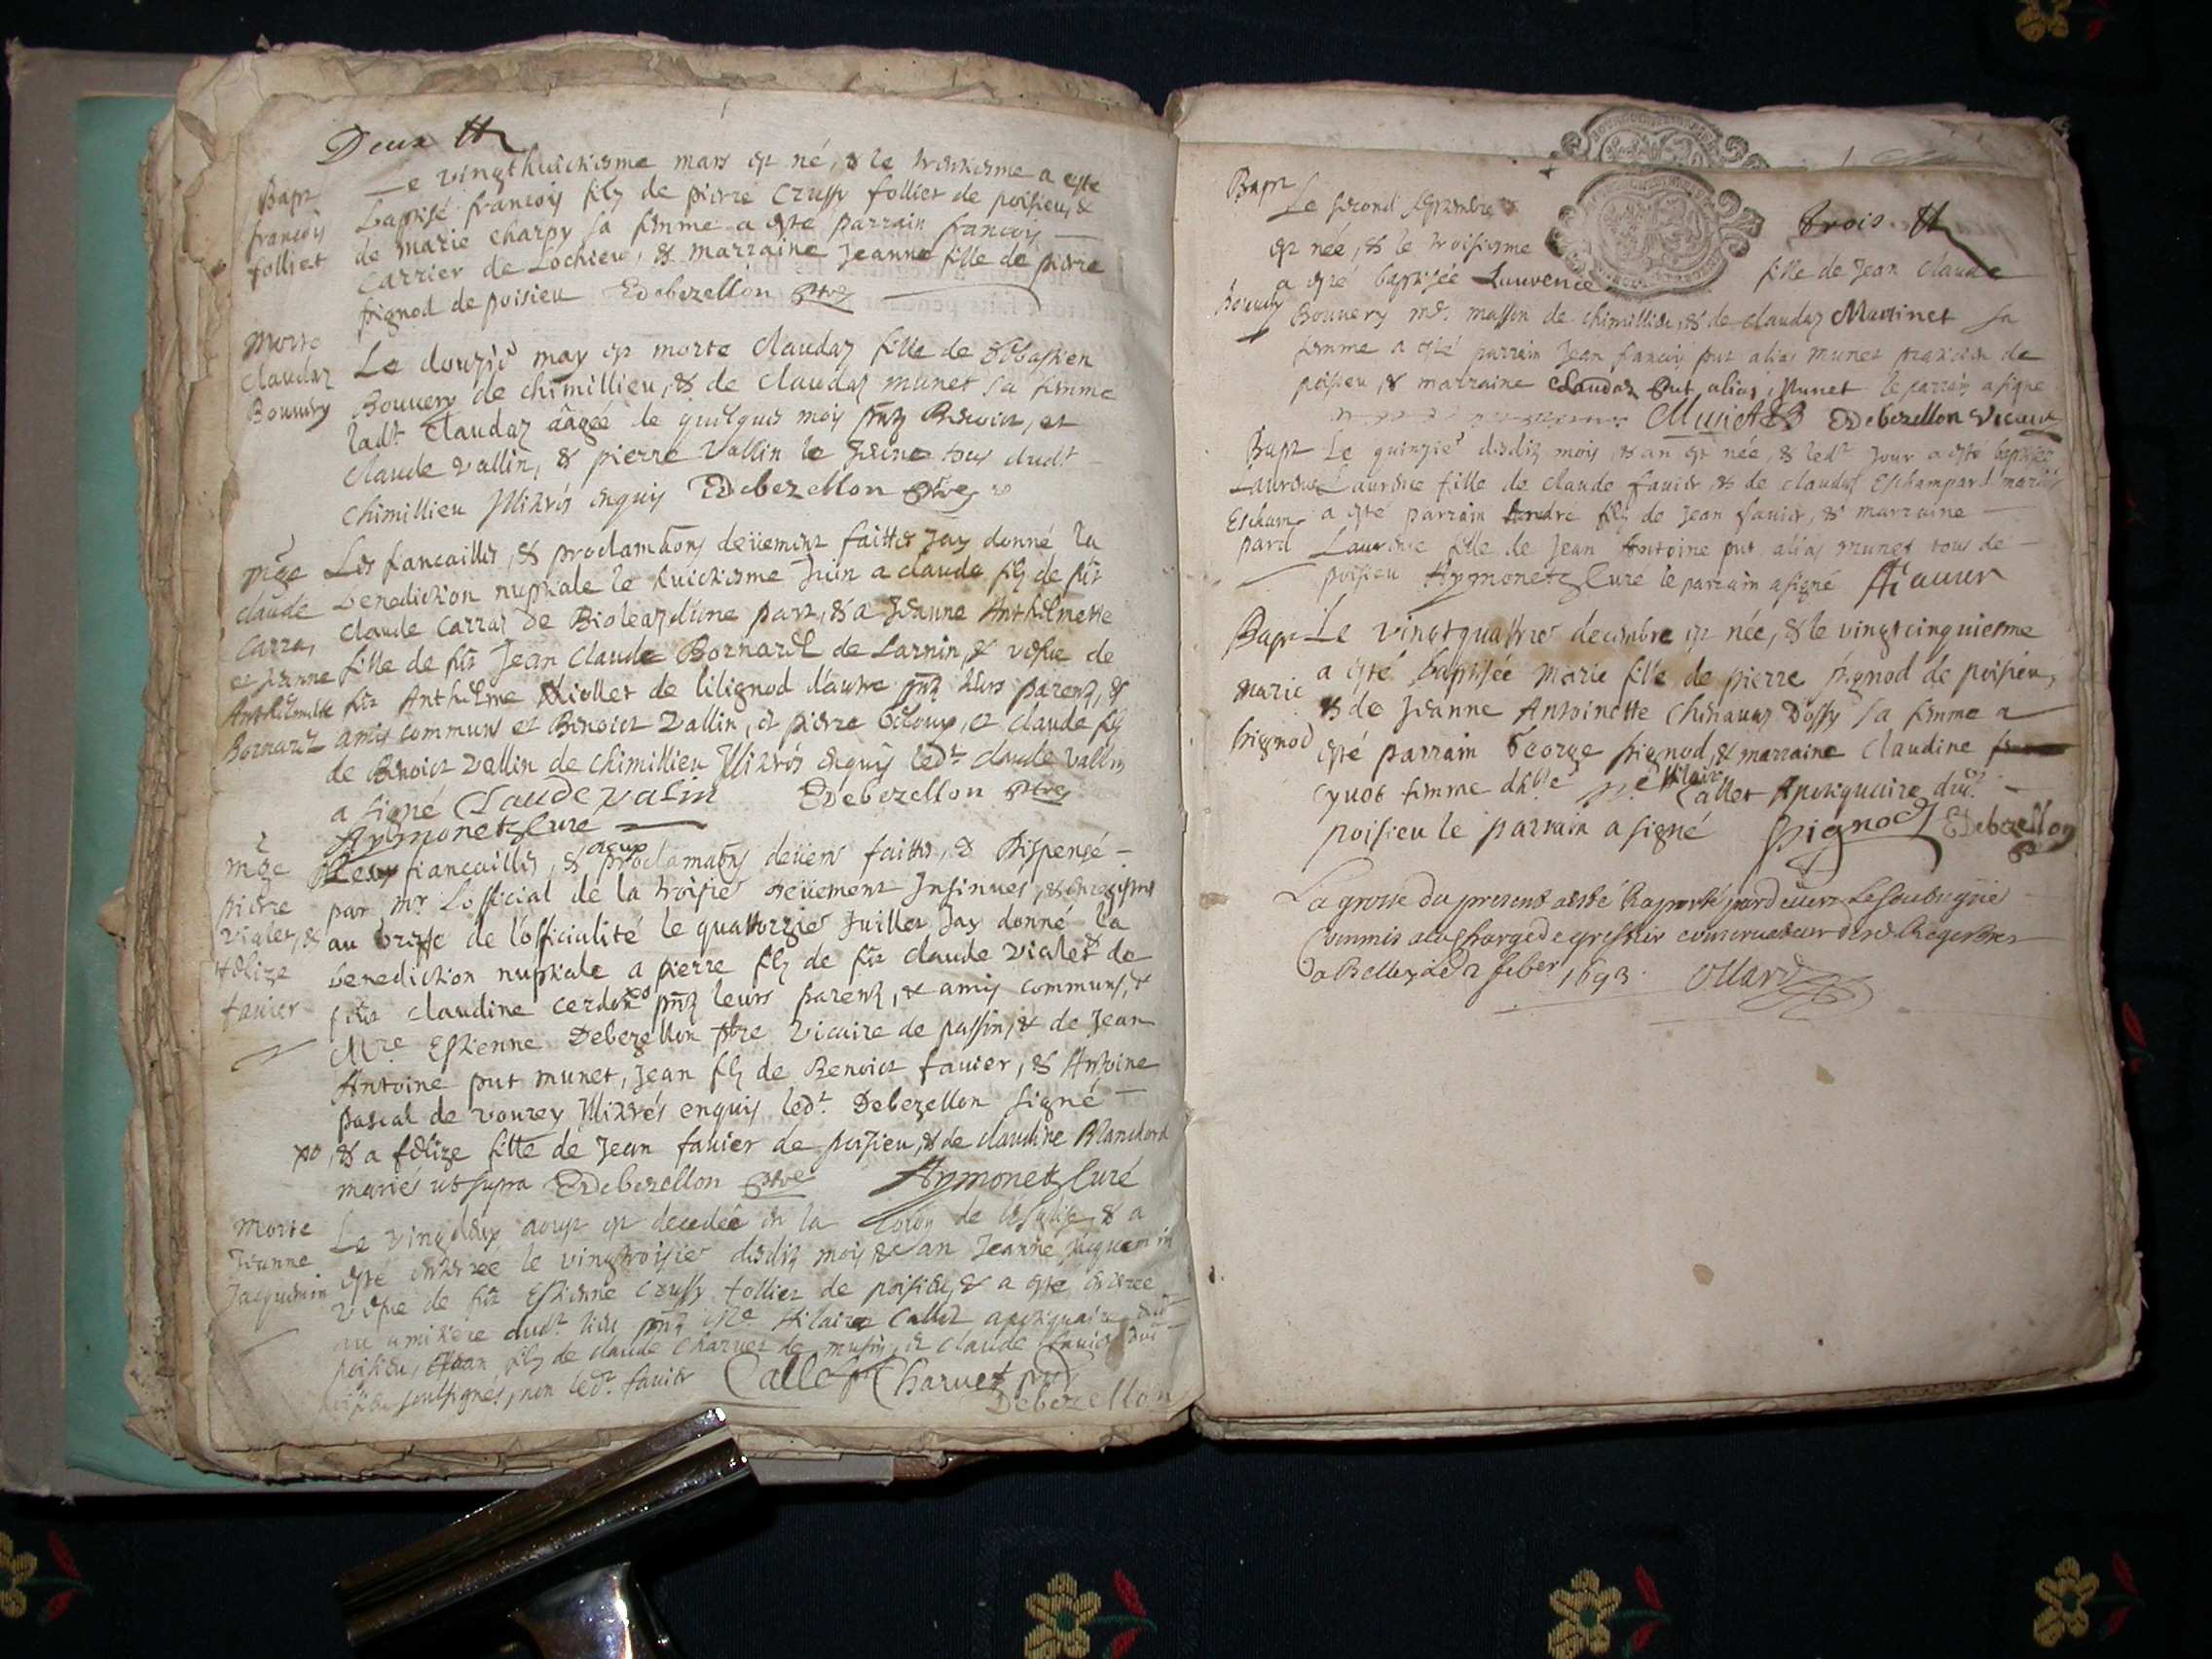 Deux
Bapt
françois
folliet
Le vingthuictiesme mars est né, & le trentiesme a esté
baptisé françois filz de pierre Crussy folliet de poisieu, &
de marie charpy sa femme a esté parrain françois
Carrier de Lochieu, & marraine Jeanne fille de pierre
pignod de poisieu EDebezellon ptre
Morte
Claudaz
Bouvery
Le douzie may est morte claudaz fille de sebastien
Bouvery de chimillieu, & de claudaz munet sa femme
ladt. Claudaz aagée de quelques mois pntz Benoict, et
claude vallin, & pierre vallin le Jeune tous dudt
chimillieu Illitrés enquis EDebezellon ptre
mge
claude
Carraz
et Jeanne
Anthelmette
Bornard
Les fiancailles, & proclamaons deüement faittes Jay donné la
benediction nuptiale le huictiesme Juin a claude filz de fût
claude Carraz de Bioleaz d'une part, & a Jeanne Anthelmette
fille de fût Jean Claude Bornard de Larnin, & vefue de
fût Anthelme Miollet de lilignod d'autre pntz leurs parentz, &
amis communs et Benoict vallin, et pierre beloup, et claude filz
de Benoict vallin de chimillieu Illitrés enquis ledt. claude vallin
a signé Claude valin EDebezellon ptre
Aymonet Curé
mge
pierre
vialet, &
felize
favier
Les fiancailles, & deux proclamaons deüemt faittes, & dispensé
par mr. Lofficial de la troisie deüement Insinues, & enregistrés
au greffe de l'officialité le quattorzie Juillet Jay donné la
benediction nuptiale a pierre filz de fût claude vialet & de
fûte claudine cerdon xo pntz leurs parentz, & amis communs, &
Mre Estienne Debezellon ptre vicaire de passin, & de Jean
Antoine put munet, Jean filz de Benoict favier, & Anthoine
pascal de vourey Illitrés enquis ledt. Debezellon signé
xo & a felize fille de Jean favier de poisieu, & de claudine Blanchard
mariés ut supra EDebezellon ptre Aymonet Curé
Morte
Jeanne
Jacquemin
Le vingdeux aoust est decedée en la de l'eglise, & a
esté enterrée le vingtroisie desditz mois, & an Jeanne Jacquemin
vefue de fût Estienne Crussy folliet de poisieu, & a esté enterree
au cimitiere dudt. lieu pntz Mre. Hilaire Callet apotiquaire dudt
poisieu, filz de claude Charvet de musin, et claude favier dud
soubsignés, non ledt. favier Callet Charvet
Debezellon
Bapt
Bouvery
trois
Le second septembre
est née, & le troisiesme
a esté baptisée Laurence fille de Jean Claude
Bouvery md. masson de chimillieu, & de claudaz Martinet sa
femme a esté parrain Jean françois put alias munet praticien de
poisieu, & marraine Claudaz put alias Munet le parrain a signe
Munet EDebezellon vicaire
Bapt
Laurence
Eschampard
Le quinzie desditz mois, & an est née, & ledt. Jour a esté baptisée
Laurence fille de claude favier, & de claudaz Eschampard mariés
a esté parrain Andre filz de Jean favier, & marraine
Laurence fille de Jean Antoine put alias munet tous de
poisieu Aymonet Curé le parrain a signé favier
Bapt
Marie
pignod
Le vingtquattrie decembre est née, & le vingtcinquiesme
a esté baptisée Marie fille de pierre pignod de poisieu,
& de Jeanne Antoinette Chenavaz Dossy sa femme a
esté parrain George pignod, & marraine Claudine
Cynot femme d'hble hilaire Callet Apotiquaire dudt.
poisieu le parrain a signé Pignod EDebezellon
La grosse du present a esté Raporté pardevers Le soubzigné
Commis a la charge de greffier conservateur desd Registres
a Belley le 2 feber 1693. Ollard